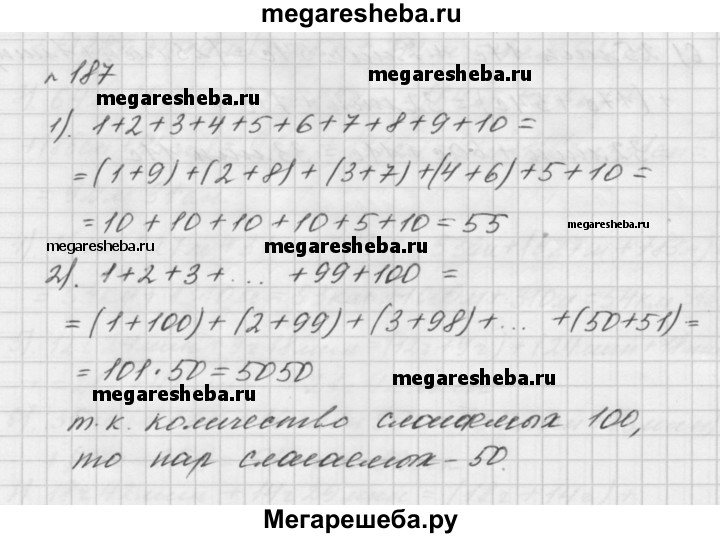 megaresheba.ru
№187
megaresheba.ru
megaresheba.ru
1). 1+2+3+4+5+6+7+8+9+10=
=(1+9)+(2+8)+(3+7)+(4+6)+5+10=
=10+10+10+10+5+10=55
megaresheba.ru
megaresheba.ru
megaresheba.ru
2). 1+2+3+... +99+100 =
=(1+100)+(2+99)+(3+98)+... +(50+51)=
=101·50=5050
megaresheba.ru
megaresheba.ru
т.к. количество слагаемых 100,
то пар слагаемых-50.
Мегарешеба.ру